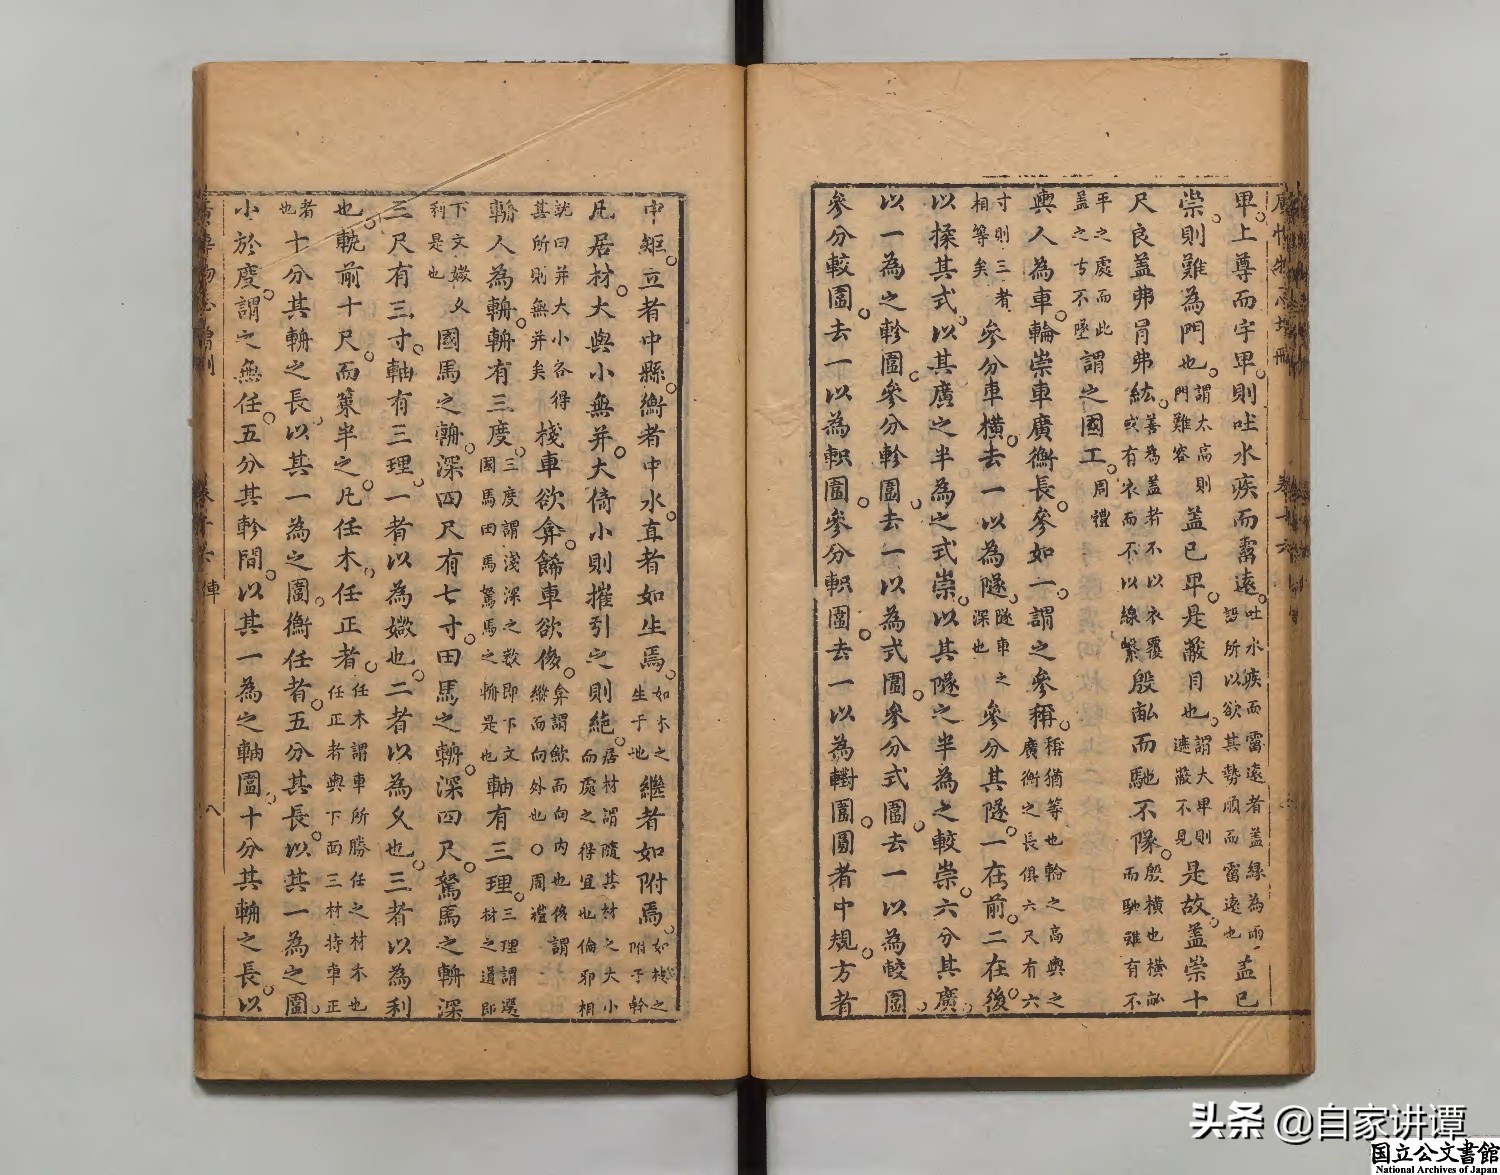 卑上尊而宇卑則吐水疾而霤遠吐水疾而霤遠者蓋緣為雨設所以欲其勢順而霤遠也蓋已
崇則難為門也謂太高則門難容蓋已卑是蔽目也謂大卑則遮蔽不見是故蓋崇十
尺良蓋弗冒弗紘善為蓋者不以衣覆或有衣而不以線繫殷畝而馳不隊殷橫也橫畝而馳雖有不
平之處而此蓋之弓不墜謂之國工周禮
輿人為車輪崇車廣衡長參如一謂之參稱稱猶等也輪之高輿之廣衡之長俱六尺有六
寸則三者相等矣參分車橫去一以為隧隧車之深也參分其隧一在前二在後
以揉其式以其廣之半為之式崇以其隧之半為之較崇六分其廣
以一為之軫圍參分軫圍去一以為式圍參分式圍去一以為較圍
參分較圍去一以為軹圍參分軹圍去一以為轛圍圓者中規方者
中矩立者中縣衡者中水直者如生焉如木之生于地繼者如附焉如枝之附于幹
凡居材大與小無并大倚小則摧引之則絕居材謂隨其材之大小而處之得宜也倫邪相
就曰并大小各得其所則無并矣棧車欲弇飾車欲侈弇謂歛而向內也侈謂縱而向外也○周禮
輈人為輈輈有三度三度謂淺深之數即下文國馬田馬駑馬之輈是也軸有三理三理謂選材之道即
下文媺久利是也國馬之輈深四尺有七寸田馬之輈深四尺駑馬之輈深
三尺有三寸軸有三理一者以為媺也二者以為久也三者以為利
也軓前十尺而策半之凡任木任正者任木謂車所勝任之材木也任正者輿下面三材持車正
者也十分其輈之長以其一為之圍衡任者五分其長以其一為之圍
小於度謂之無任五分其軫間以其一為之軸圍十分其輈之長以
卷十六
八
头条 @自家讲谭
国立公文書館
National Archives of Japan